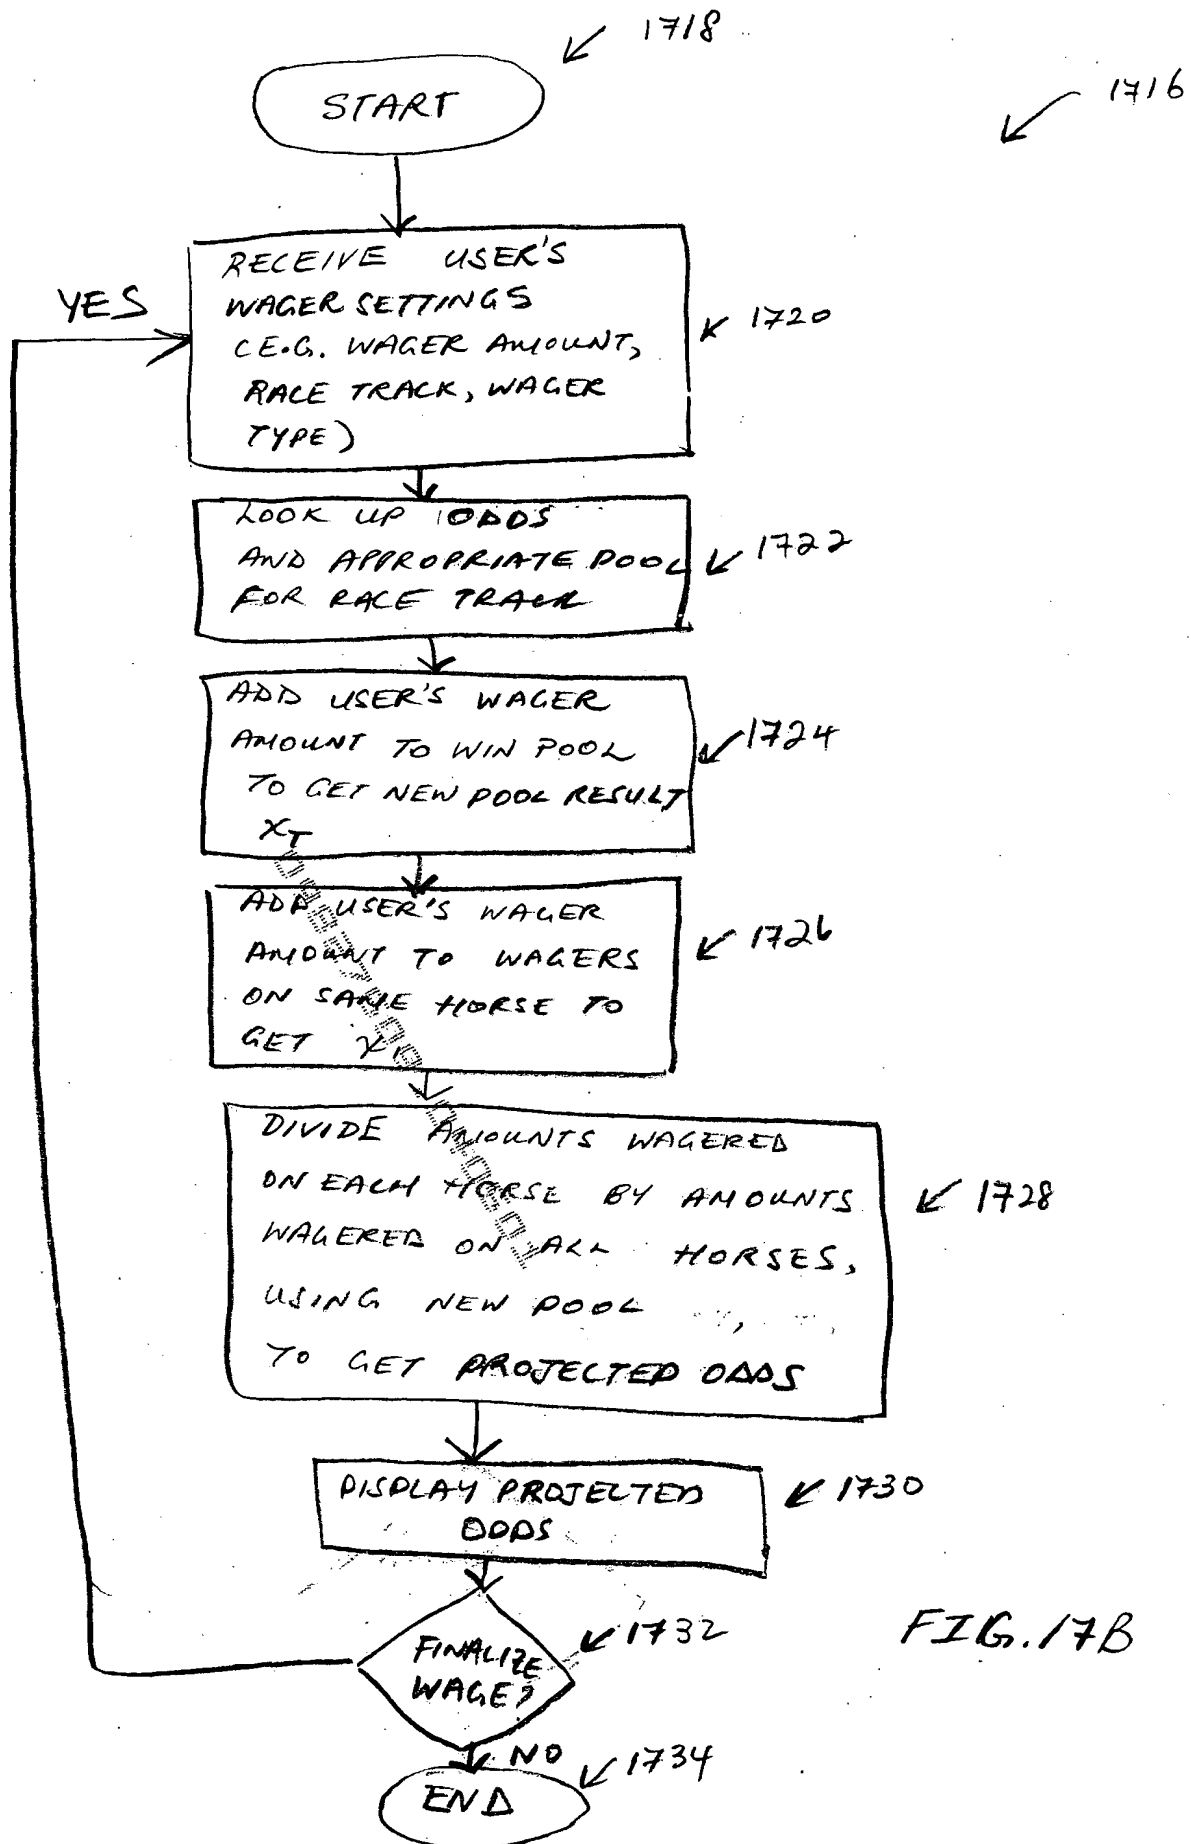 1718
1716
START
YES
RECEIVE USER'S
WAGER SETTINGS
(E.G. WAGER AMOUNT,
RACE TRACK, WAGER
TYPE)
1720
LOOK UP ODDS
AND APPROPRIATE POOL
FOR RACE TRACK
1722
ADD USER'S WAGER
AMOUNT TO WIN POOL
TO GET NEW POOL RESULT
X_T
1724
ADD USER'S WAGER
AMOUNT TO WAGERS
ON SAME HORSE TO
GET
1726
DIVIDE AMOUNTS WAGERED
ON EACH HORSE BY AMOUNTS
WAGERED ON ALL HORSES,
USING NEW POOL
TO GET PROJECTED ODDS
1728
DISPLAY PROJECTED
ODDS
1730
FINALIZE
WAGE?
1732
NO
END
1734
FIG. 17B